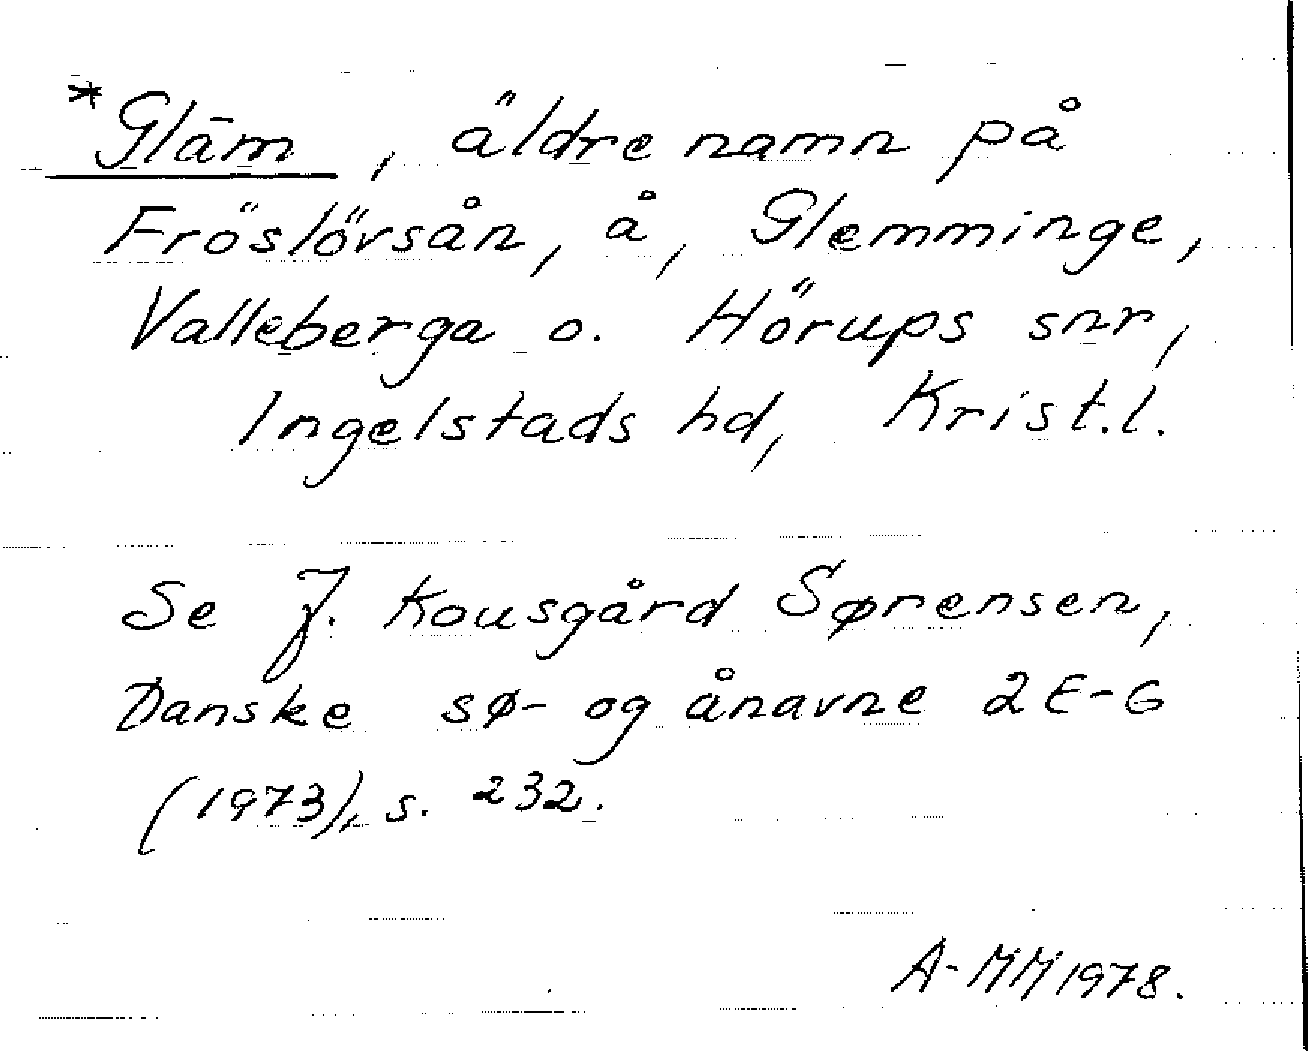 *Glām, äldre namn på
Fröslövsån, å, Glemminge,
Valleberga o. Hörups snr,
Ingelstads hd, Krist.l.
Se J. Kousgård Sørensen,
Danske sø- og ånavne 2 E-G
(1973), s. 232.
A-MM 1978.